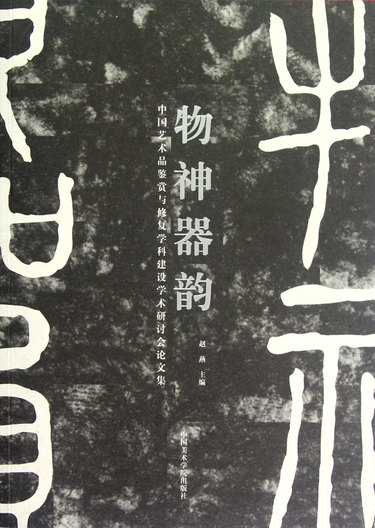 物神器韵
中国艺术品鉴赏与修复学科建设学术研讨会论文集
赵燕 主编
中国美术学院出版社